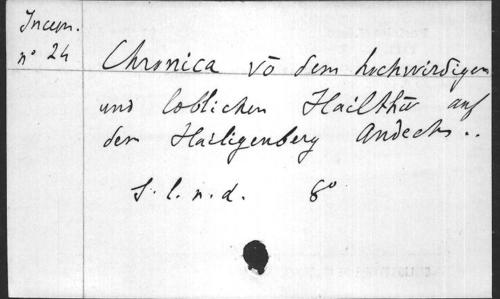 Incun.
n° 24
Chronica vō dem hochwirdigen
und loblichen Hailthū auf
dem Hailigenberg Andechs ..
S. l. n. d. 8°